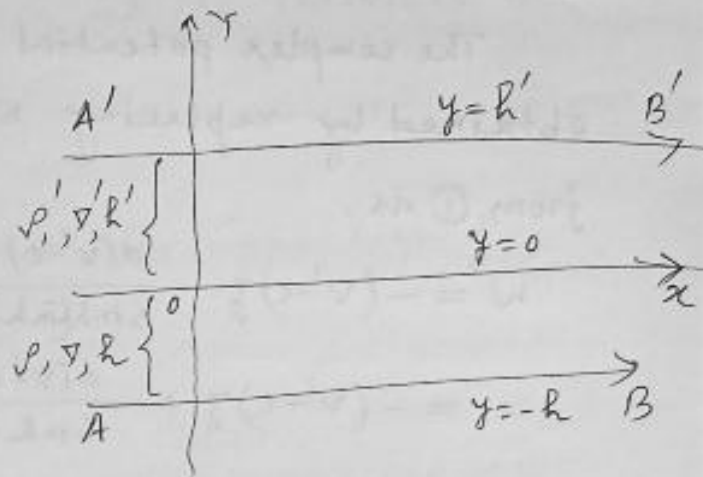 Y
A'
y=h'
B'
ρ', V', h'
y=0
0
x
ρ, V, h
A
y=-h
B